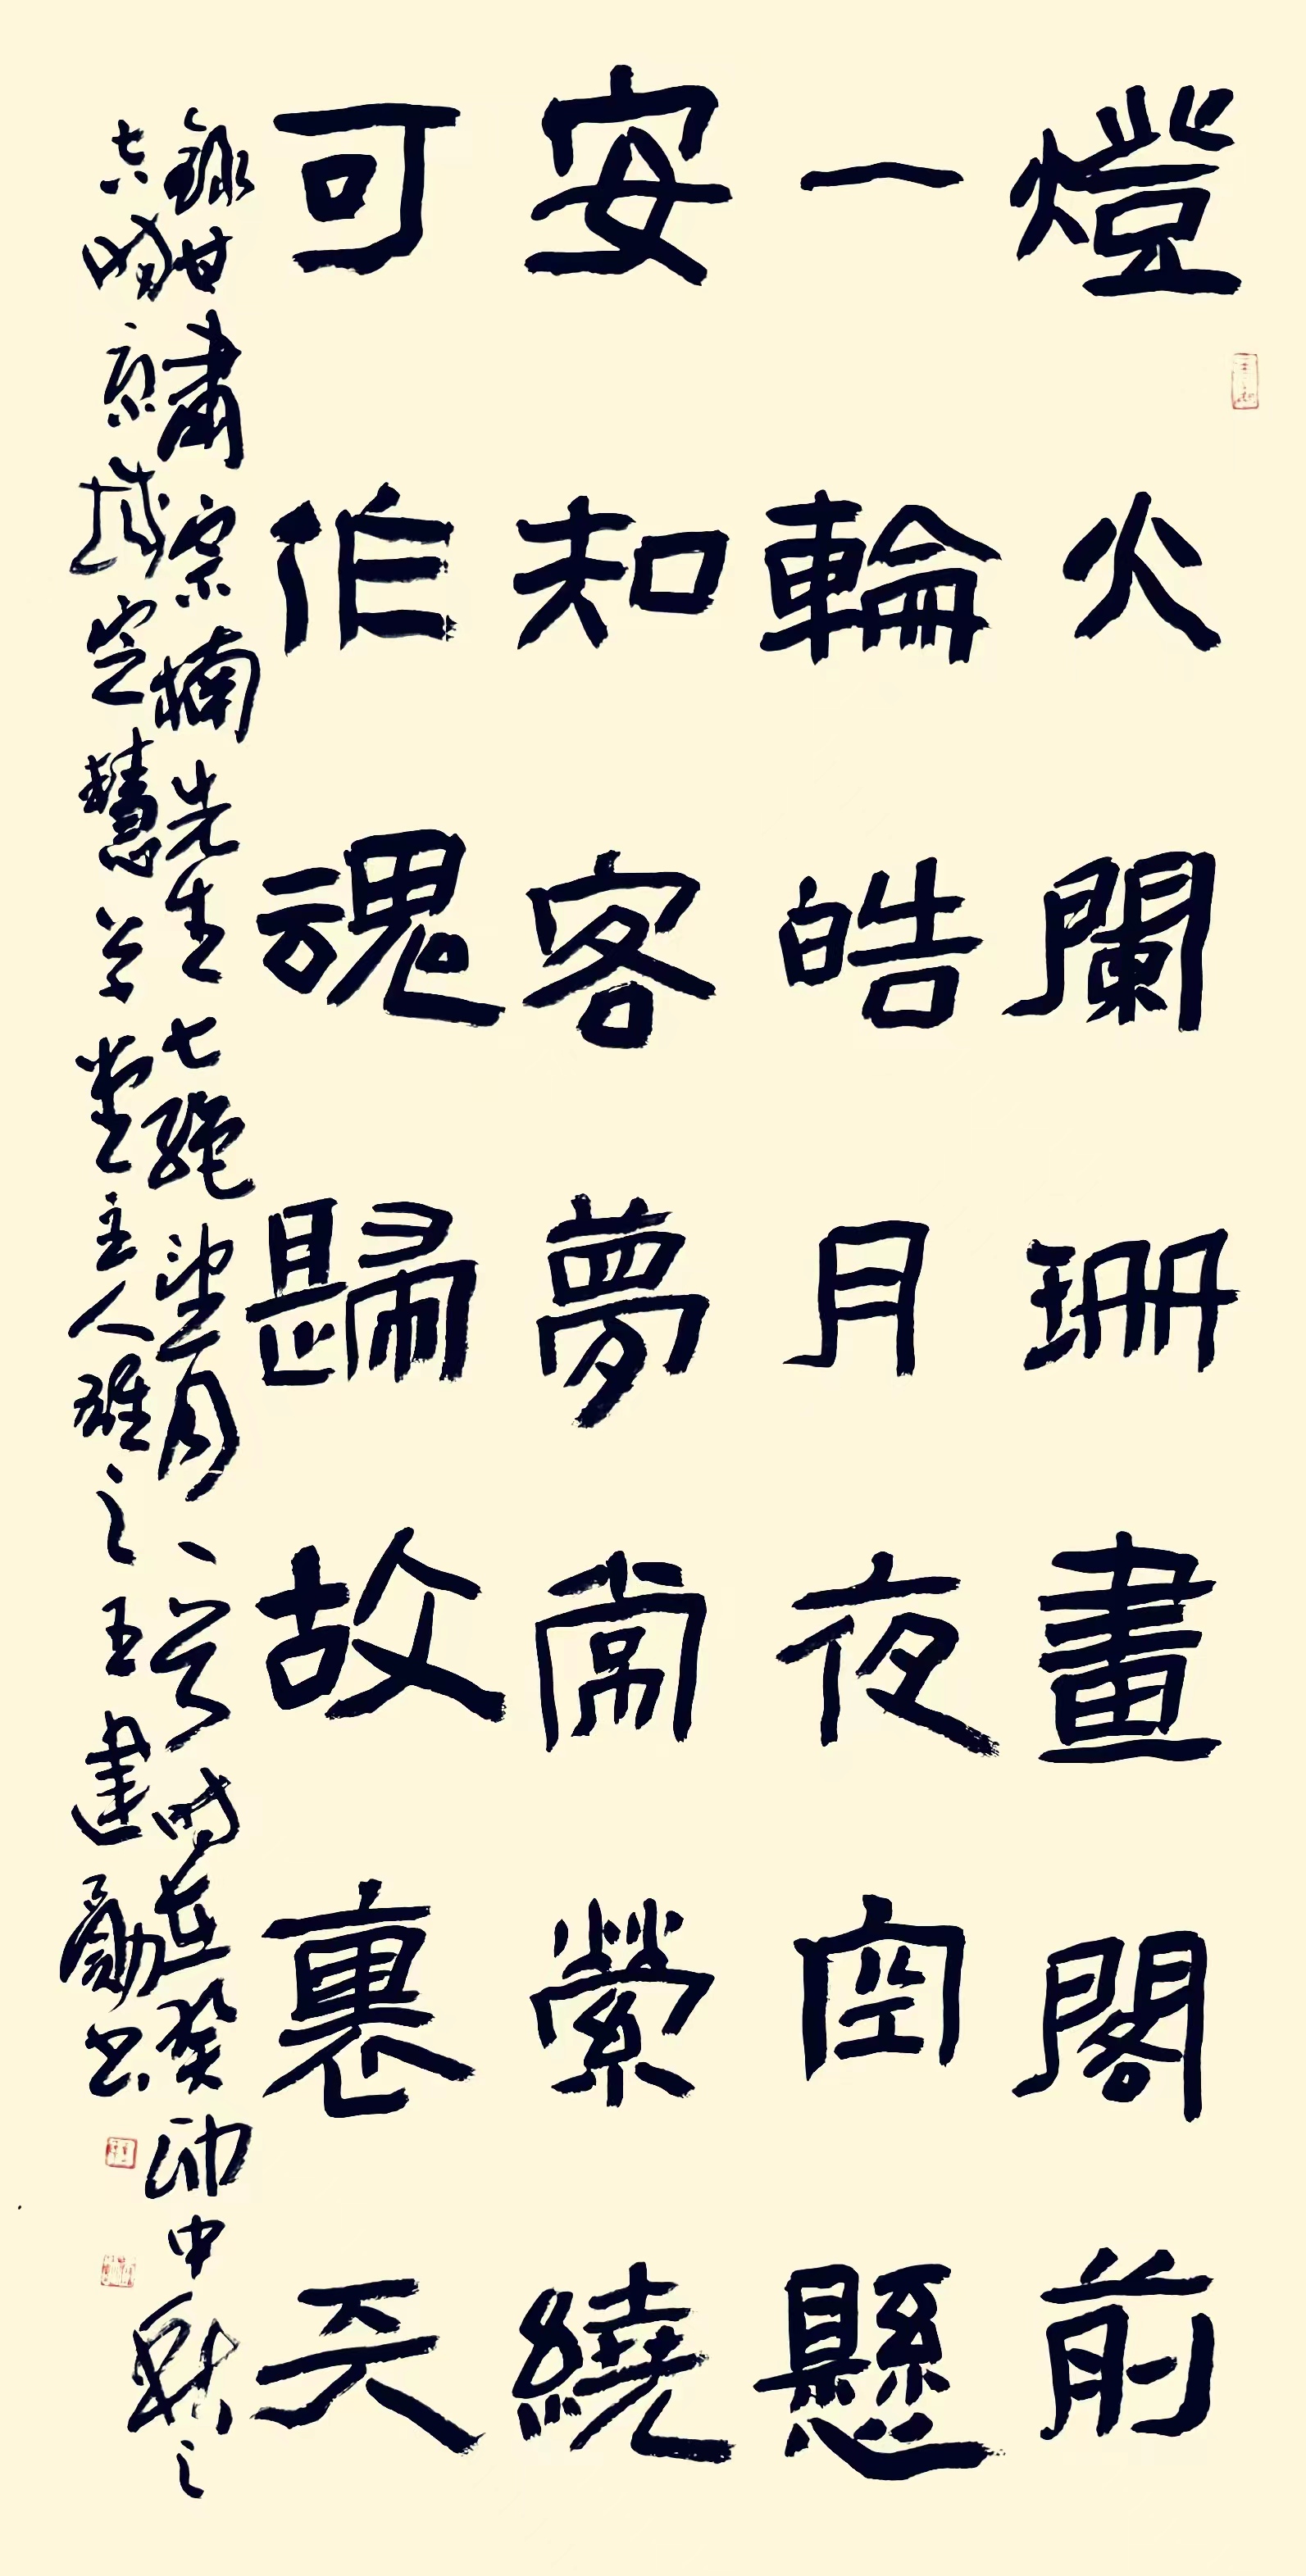 燈火闌珊畫閣前
一輪皓月夜空懸
安知客夢常縈繞
可作魂歸故裏天
錄甘肅宗楠先生七絕望月一首時在癸卯中秋之
吉時於京城定慧草堂主人雄之王建勳書